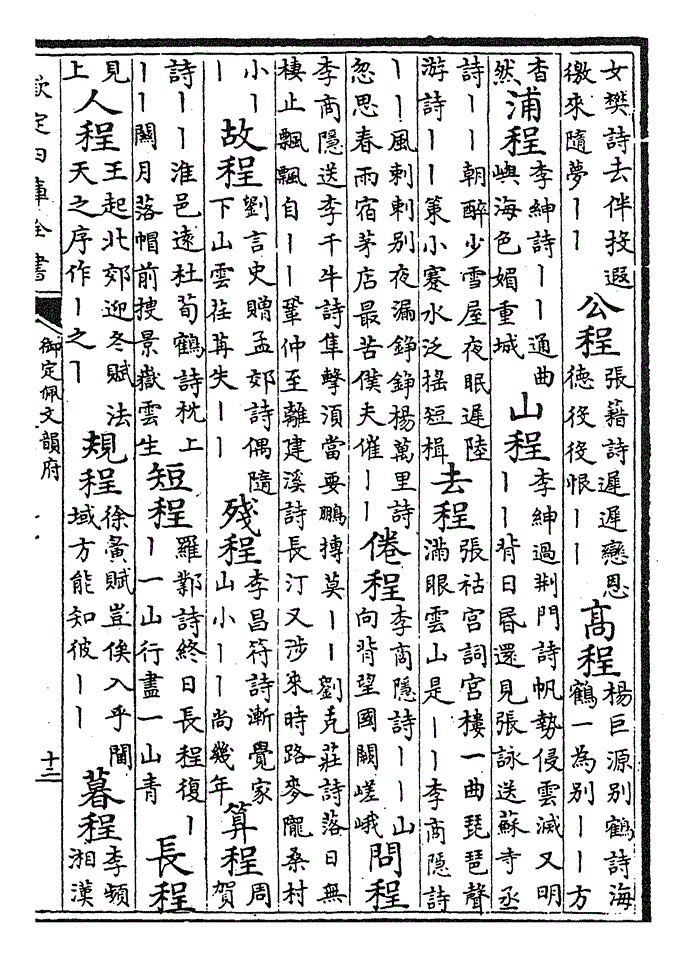 女樊詩去伴投遐徼來隨夢丨丨 公程 張籍詩遲遲戀恩德役役恨丨丨 高程 楊巨源別鶴詩海鶴一為別丨丨方
杳然 浦程 李紳詩丨丨通曲嶼海色媚重城 山程 李紳過荆門詩帆勢侵雲滅又明丨丨背日昬還見張詠送蘇寺丞
詩丨丨朝醉少雪屋夜眠遲陸游詩丨丨䇿小蹇水泛摇短楫 去程 張祜宫詞宫樓一曲琵琶聲滿眼雲山是丨丨李商隱詩
丨丨風剌剌別夜漏錚錚楊萬里詩忽思春雨宿茅店最苦僕夫催丨丨 倦程 李商隱詩丨丨山向背望國闕嵯峨 問程
李商隱送李千牛詩隼擊湏當要鵬摶莫丨丨劉克莊詩落日無棲止飄飄自丨丨鞏仲至離建溪詩長汀又涉來時路麥隴桑村
小丨 故程 劉言史贈孟郊詩偶隨下山雲荏苒失丨丨 殘程 李昌符詩漸覺家山小丨丨尚幾年 算程 周賀
詩丨丨淮邑遠杜荀鶴詩枕上丨丨關月落帽前搜景嶽雲生 短程 羅鄴詩終日長程復丨丨一山行盡一山青 長程
見上 人程 王起北郊迎冬賦法天之序作丨之丨 規程 徐夤賦豈俟入乎閫域方能知彼丨丨 暮程 李頻湘漢
欽定四庫全書
御定佩文韻府
十二